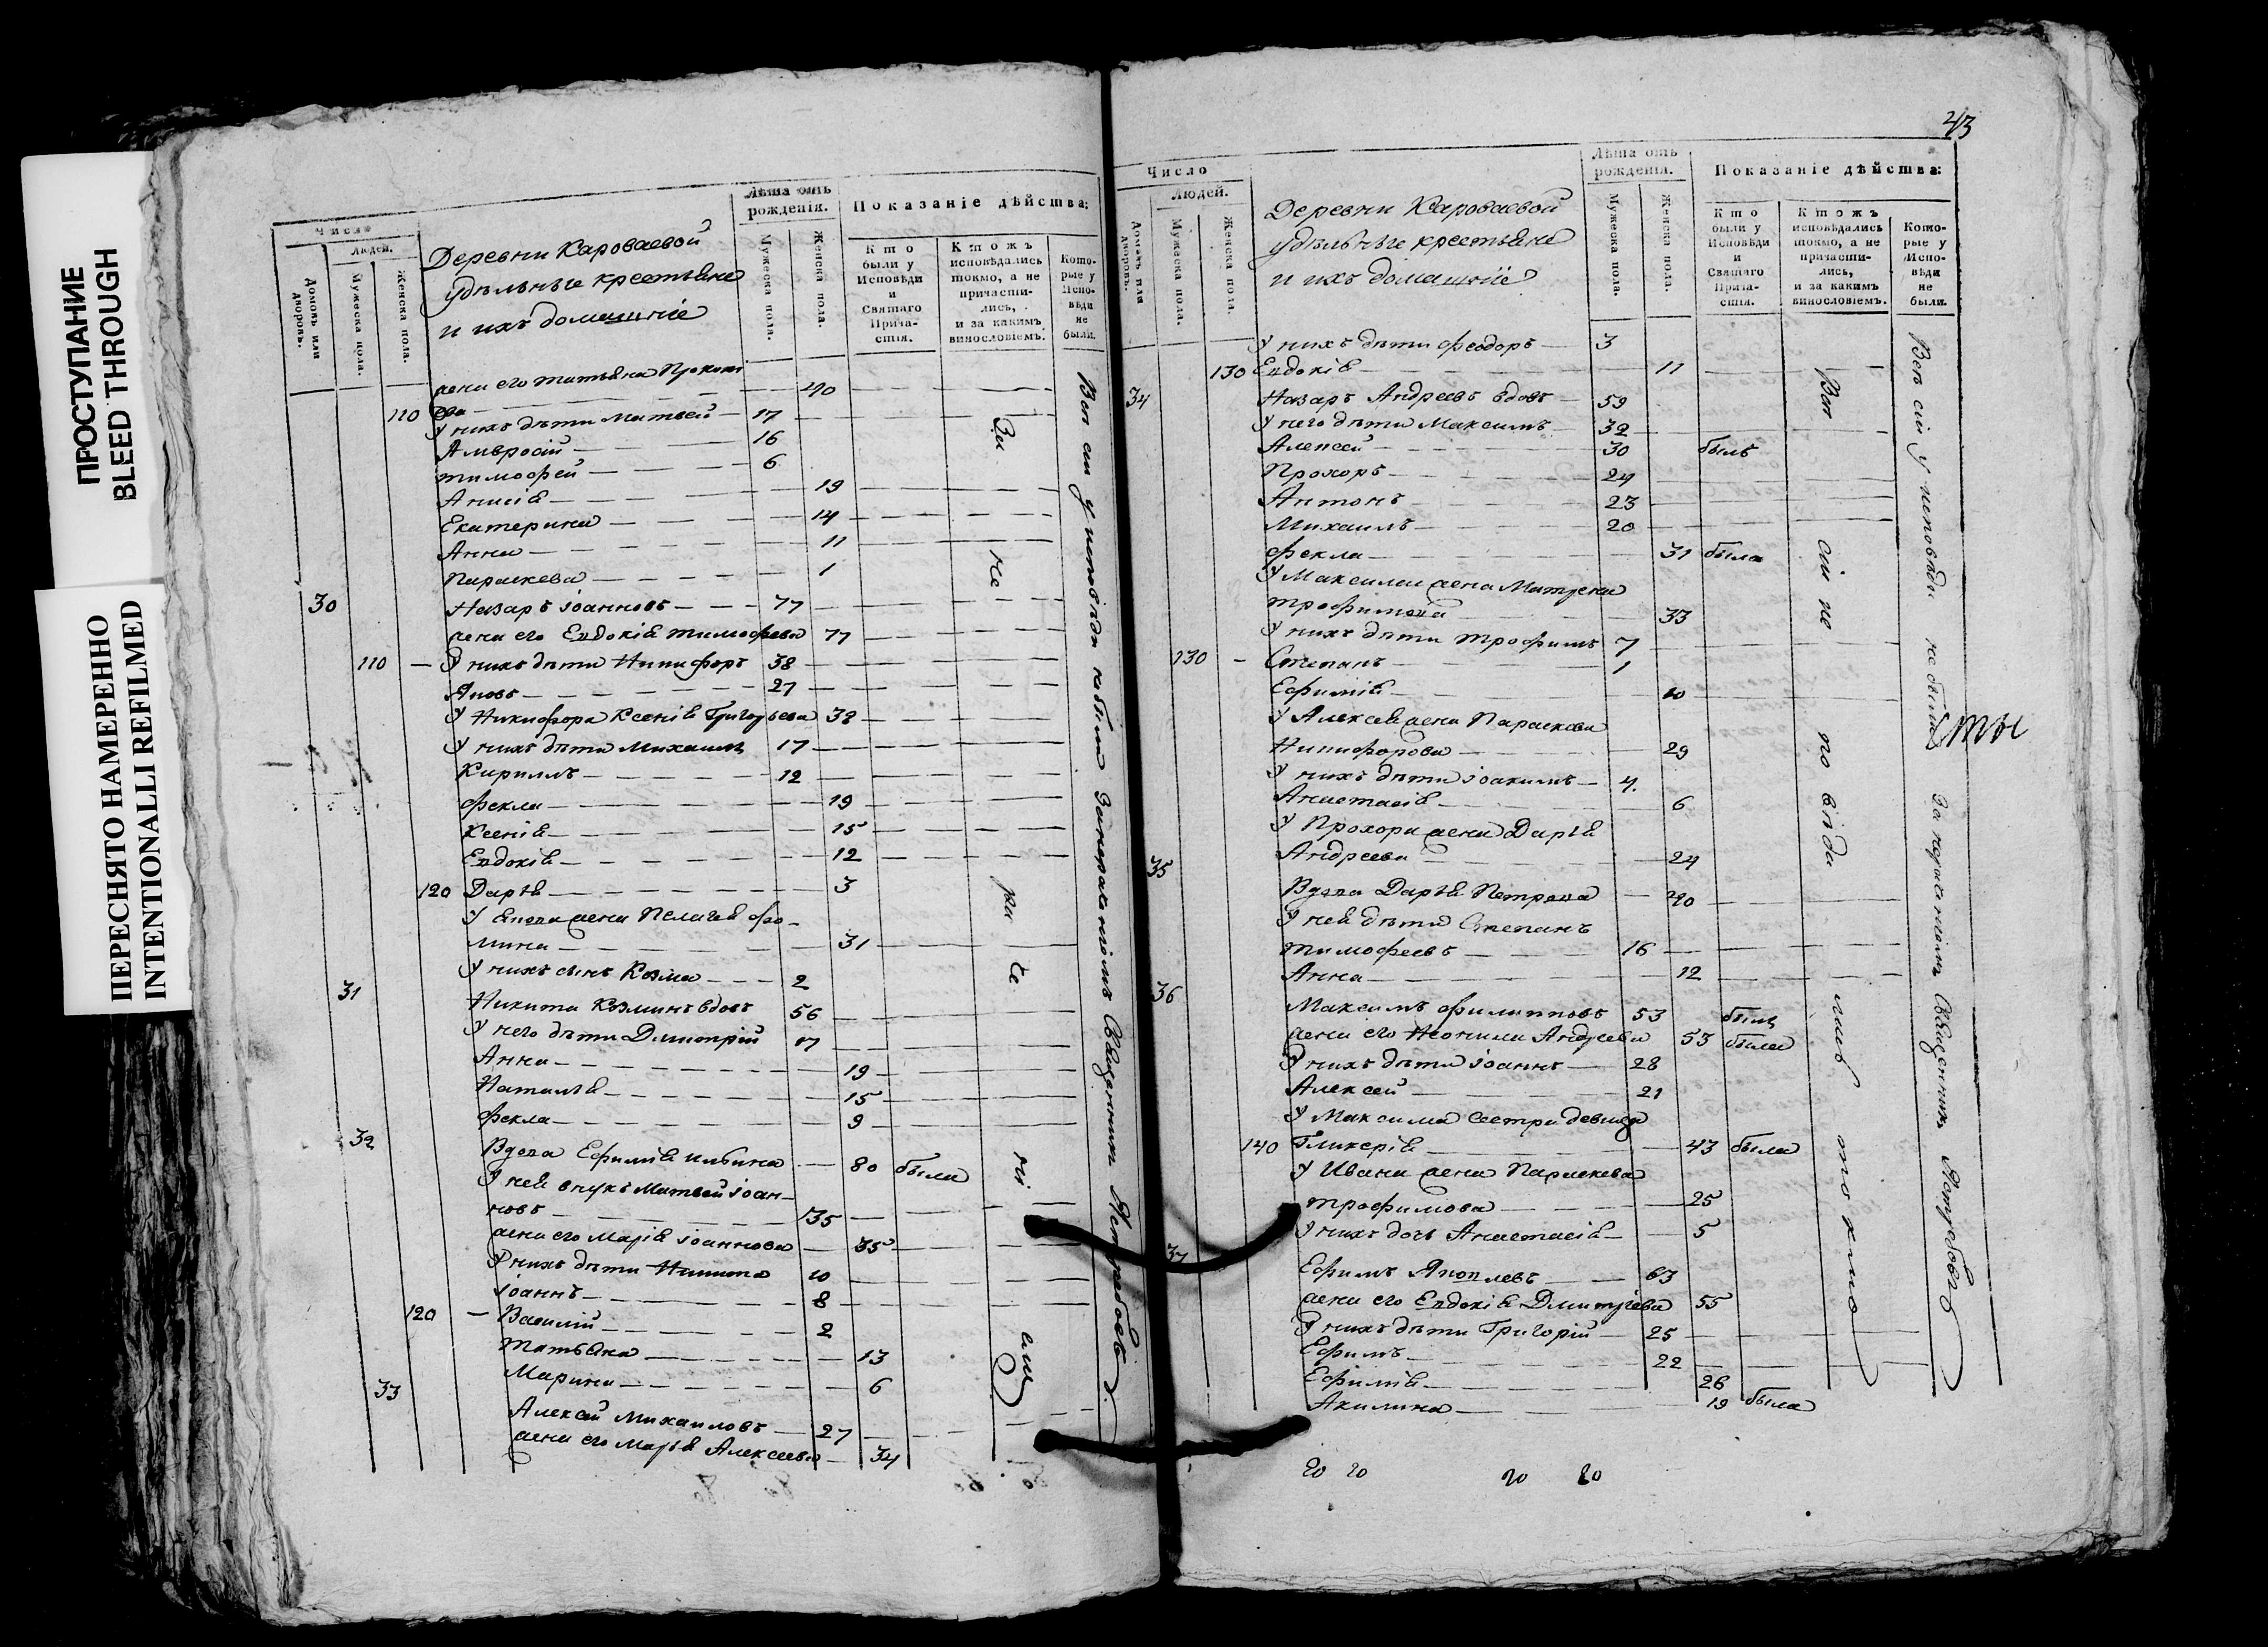 ПРОСТУПАНИЕ
BLEED THROUGH
ПЕРЕСНЯТО НАМЕРЕННО
INTENTIONALLI REFILMED
Число
Людей.
Домовъ или дворовъ.
Мужеска пола.
Женска пола.
Деревни Короваевой
удѣльные крестьяне
и ихъ домашніе
Лѣта отъ рожденія.
Мужеска пола.
Женска пола.
Показаніе дѣйства:
Кто были у Исповѣди и Святаго Причастія.
Ктожъ исповѣдались токмо, а не причастились, и за какимъ винословіемъ.
Которые у Исповѣди не были.
жена его татьяна 40
110
У нихъ дѣти Матвей 17
Амвросій 16
тимофей 6
Анисія 19
Екатерина 14
Анна 11
Параскева 1
30 Назаръ іоанновъ 77
жена его Евдокія тимофева 77
110 У нихъ дѣти Никифоръ 38
Яковъ 27
У Никифора Ксенія Григорьева 38
У нихъ дѣти Михаилъ 17
Кириллъ 12
фекла 19
Ксенія 15
Евдокія 12
120 Дарья 3
У Якова жена Пелагея фо-
мина 31
У нихъ сынъ Козма 2
31 Никита Козминъ вдовъ 56
У него дѣти Димитрій 17
Анна 19
Наталья 15
фекла 9
32 Вдова Ефимія ильина 80 была
У нея внукъ Матвей іоан-
новъ 35
жена его Марія іоаннова 35
У нихъ дѣти Никита 10
іоаннъ 8
120 Василій 2
татьяна 13
Марина 6
33 Алексей Михаиловъ 27
жена его Марья Алексеева 34
За
не
ра
че
ні
емъ
Всѣ сіи у исповѣди не были за нераченіемъ Священникъ Ястребовъ
43
Число
Людей.
Домовъ или дворовъ.
Мужеска пола.
Женска пола.
Деревни Короваевой
удѣльные крестьяне
и ихъ домашніе
Лѣта отъ рожденія.
Мужеска пола.
Женска пола.
Показаніе дѣйства:
Кто были у Исповѣди и Святаго Причастія.
Ктожъ исповѣдались токмо, а не причастились, и за какимъ винословіемъ.
Которые у Исповѣди не были.
У нихъ дѣти феодоръ 3
130 Евдокія 11
34 Назаръ Андреевъ вдовъ 59
У него дѣти Максимъ 32
Алексей 30 былъ
Прохоръ 24
Антонъ 23
Михаилъ 20
фекла 31 была
У Максима жена Матрена
трофимова 33
У нихъ дѣти трофимъ 7
130 Степанъ 1
Ефимія 10
У Алексея жена Параскева
Никифорова 29
У нихъ дѣти іоакимъ 4
Анастасія 6
У Прохора жена Дарья
Андреева 24
35 Вдова Дарья Петрова 40
У нея дѣти Степанъ
тимофеевъ 16
Анна 12
36 Максимъ филипповъ 53 былъ
жена его Неонила Андреева 53 была
У нихъ дѣти іоаннъ 28
Алексей 21
У Максима сестра девица
140 Гликерія 43 была
У Ивана жена Параскева
трофимова 25
У нихъ дочь Анастасія 5
37 Ефимъ Яковлевъ 63
жена его Евдокія Дмитріева 55
У нихъ дѣти Григорій 25
Ефимъ 22
Ефимія 26
Акилина 19 была
Всѣ сіи у исповѣди не были за нераченіемъ Священникъ Ястребовъ
20 20 20 20